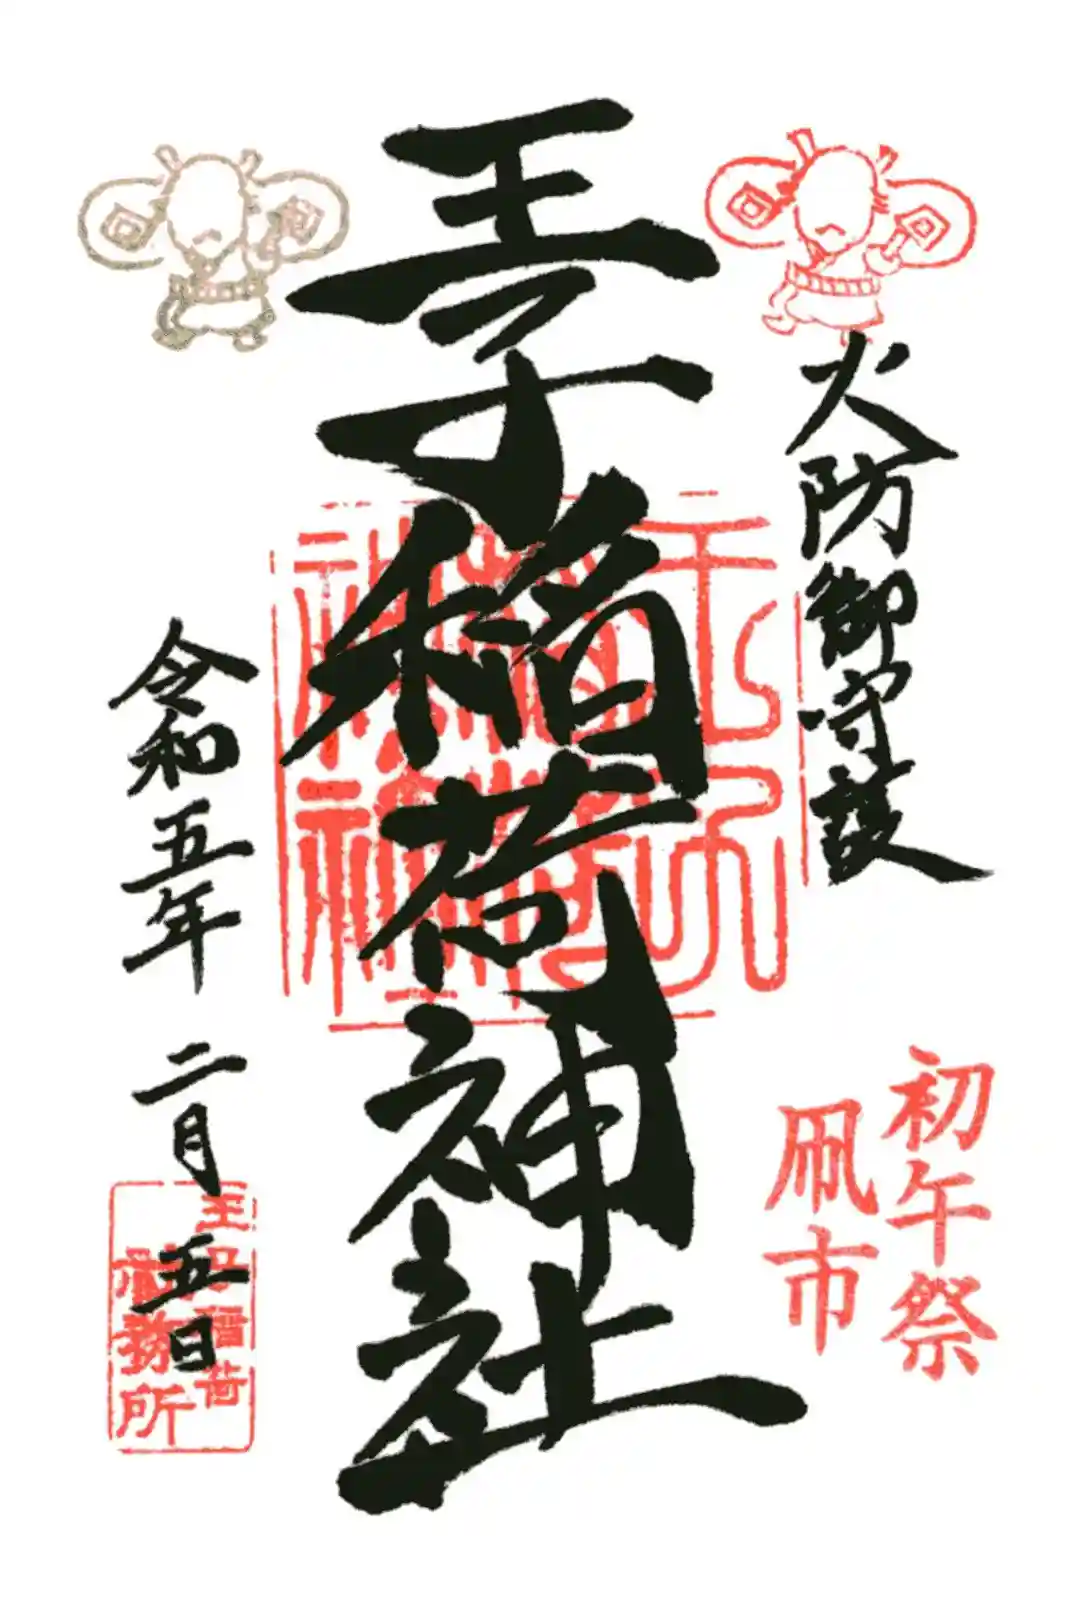 火防御守護
初午祭
凧市
王子稲荷神社
令和五年
二月
五日
王子稲荷
社務所